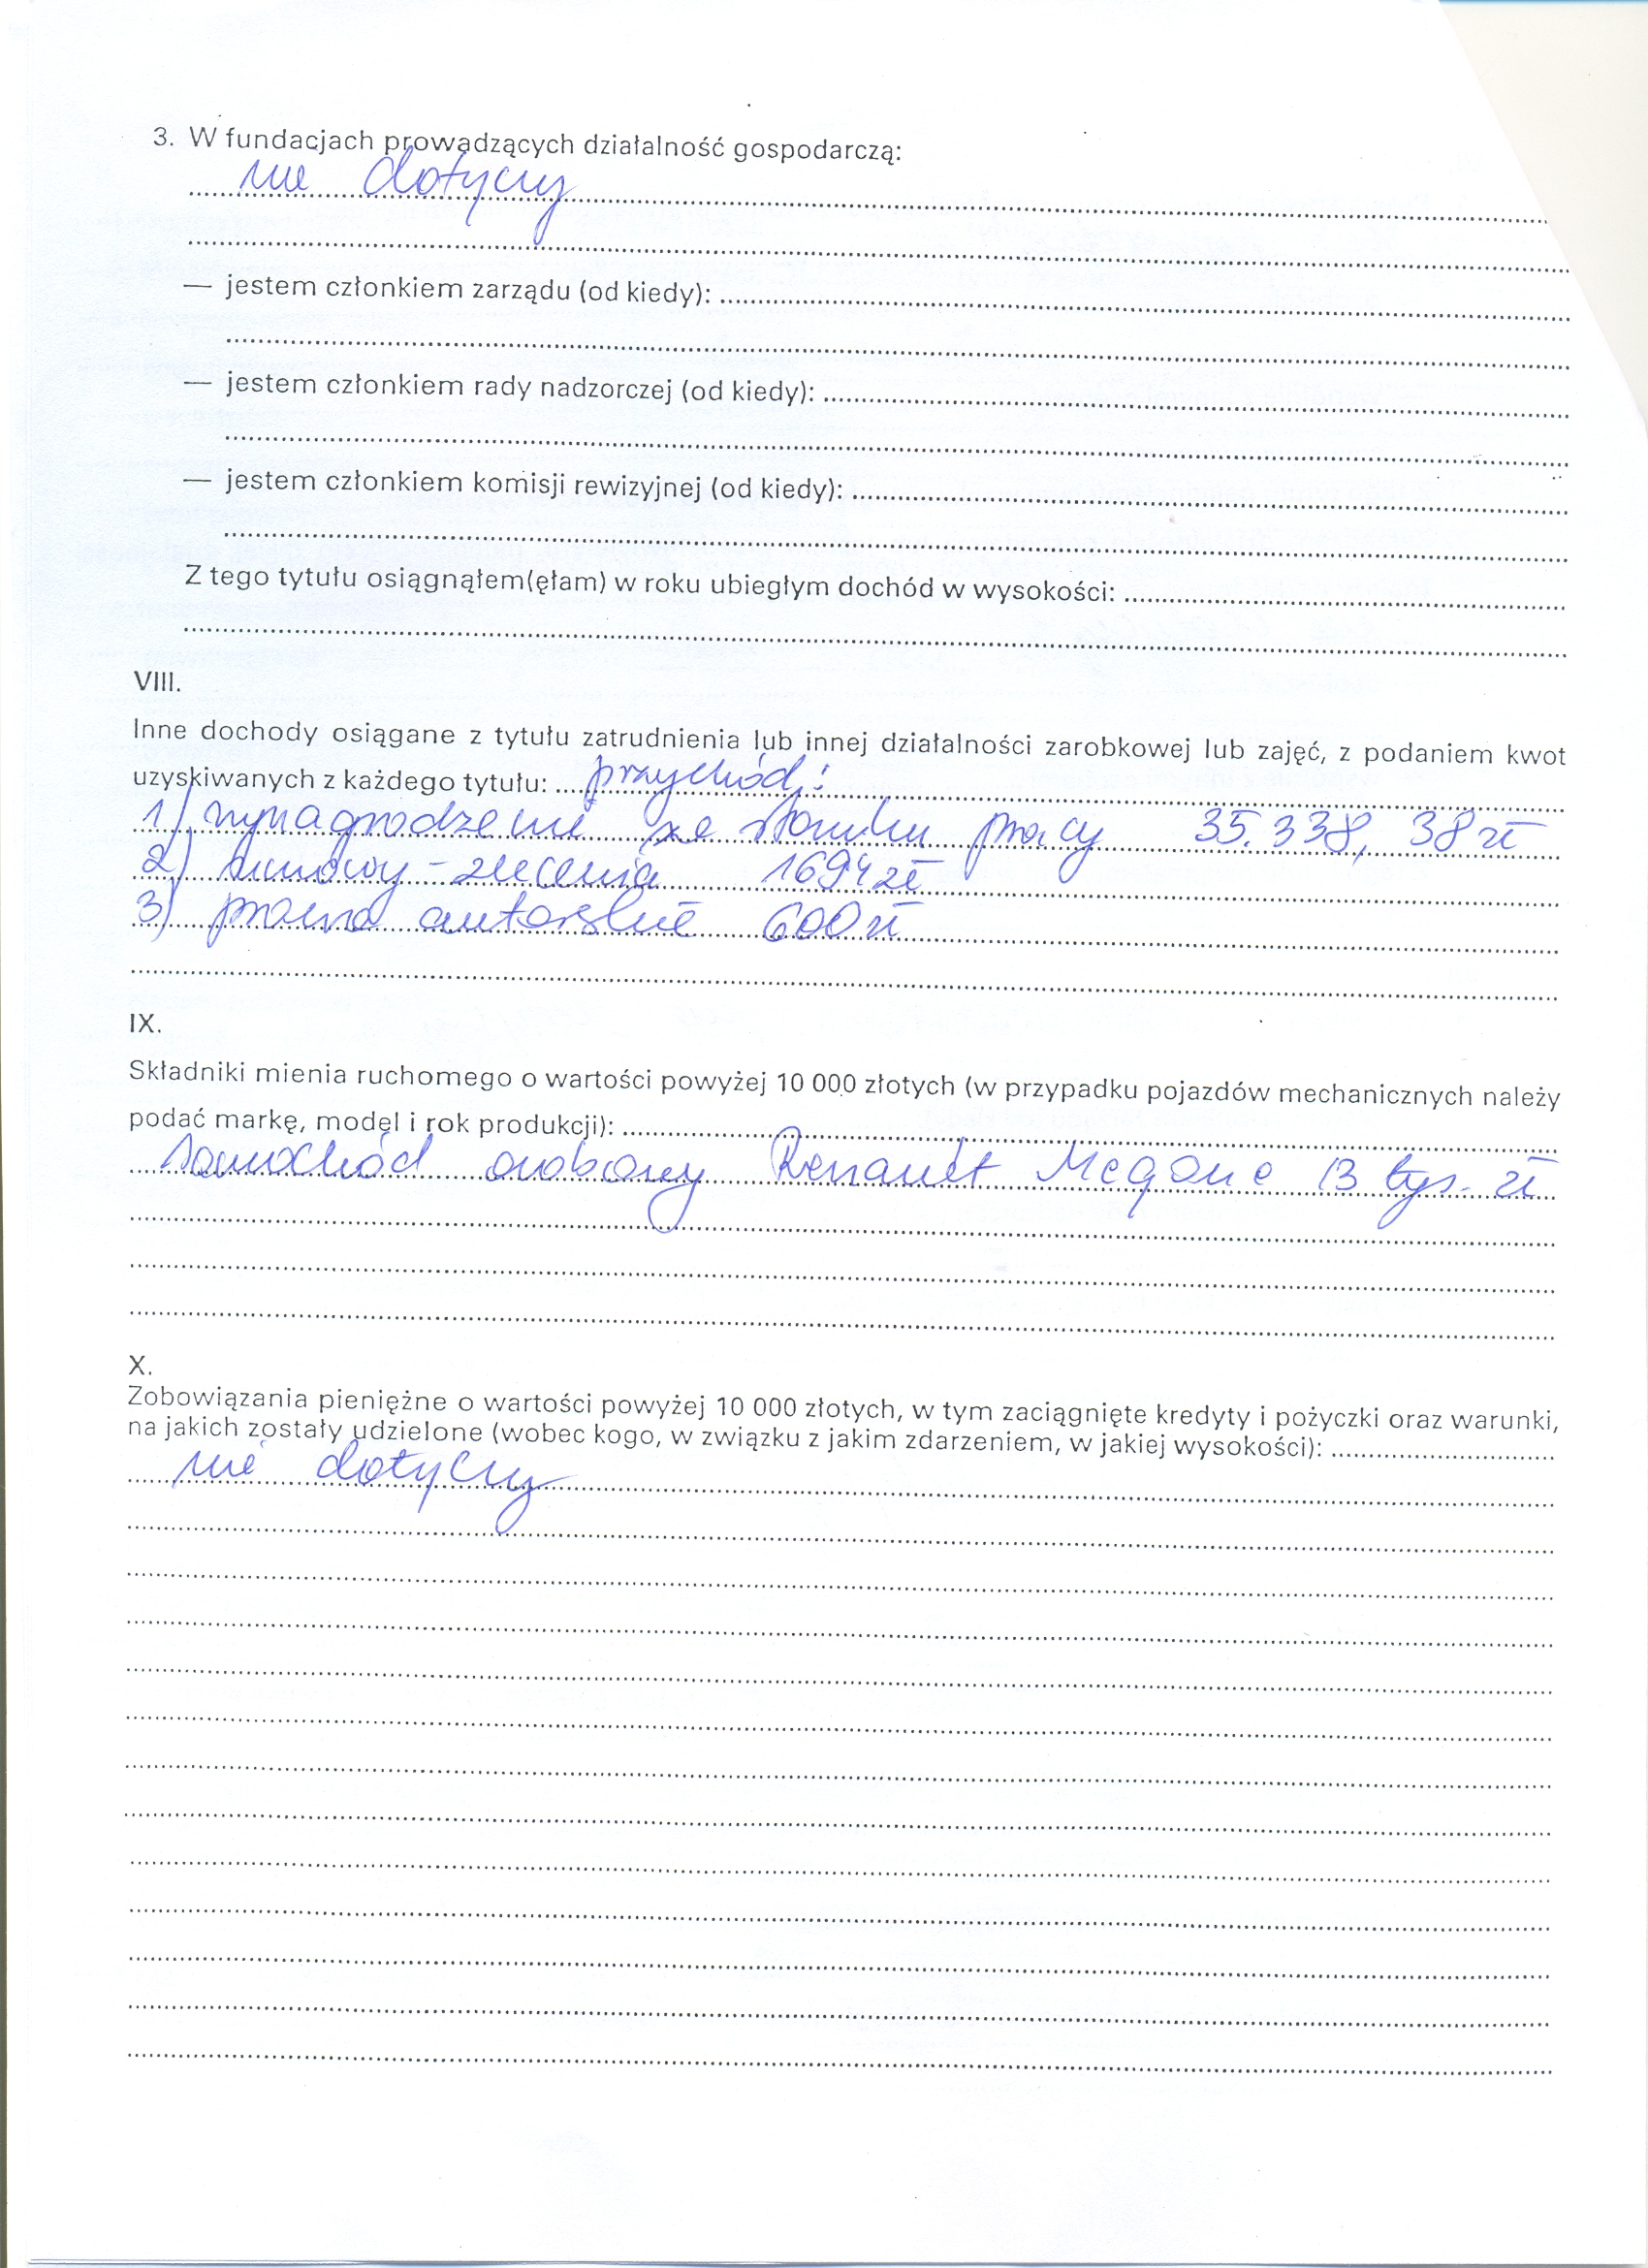 3. W fundacjach prowadzących działalność gospodarczą:
nie dotyczy
— jestem członkiem zarządu (od kiedy):
— jestem członkiem rady nadzorczej (od kiedy):
— jestem członkiem komisji rewizyjnej (od kiedy):
Z tego tytułu osiągnąłem(ęłam) w roku ubiegłym dochód w wysokości:
VIII.
Inne dochody osiągane z tytułu zatrudnienia lub innej działalności zarobkowej lub zajęć, z podaniem kwot
uzyskiwanych z każdego tytułu: przychód:
1) wynagrodzenie ze stosunku pracy 35.338,38 zł
2) umowy - zlecenia 1694 zł
3) prawa autorskie 600 zł
IX.
Składniki mienia ruchomego o wartości powyżej 10 000 złotych (w przypadku pojazdów mechanicznych należy
podać markę, model i rok produkcji):
samochód osobowy Renault Megane 13 tys. zł
X.
Zobowiązania pieniężne o wartości powyżej 10 000 złotych, w tym zaciągnięte kredyty i pożyczki oraz warunki,
na jakich zostały udzielone (wobec kogo, w związku z jakim zdarzeniem, w jakiej wysokości):
nie dotyczy